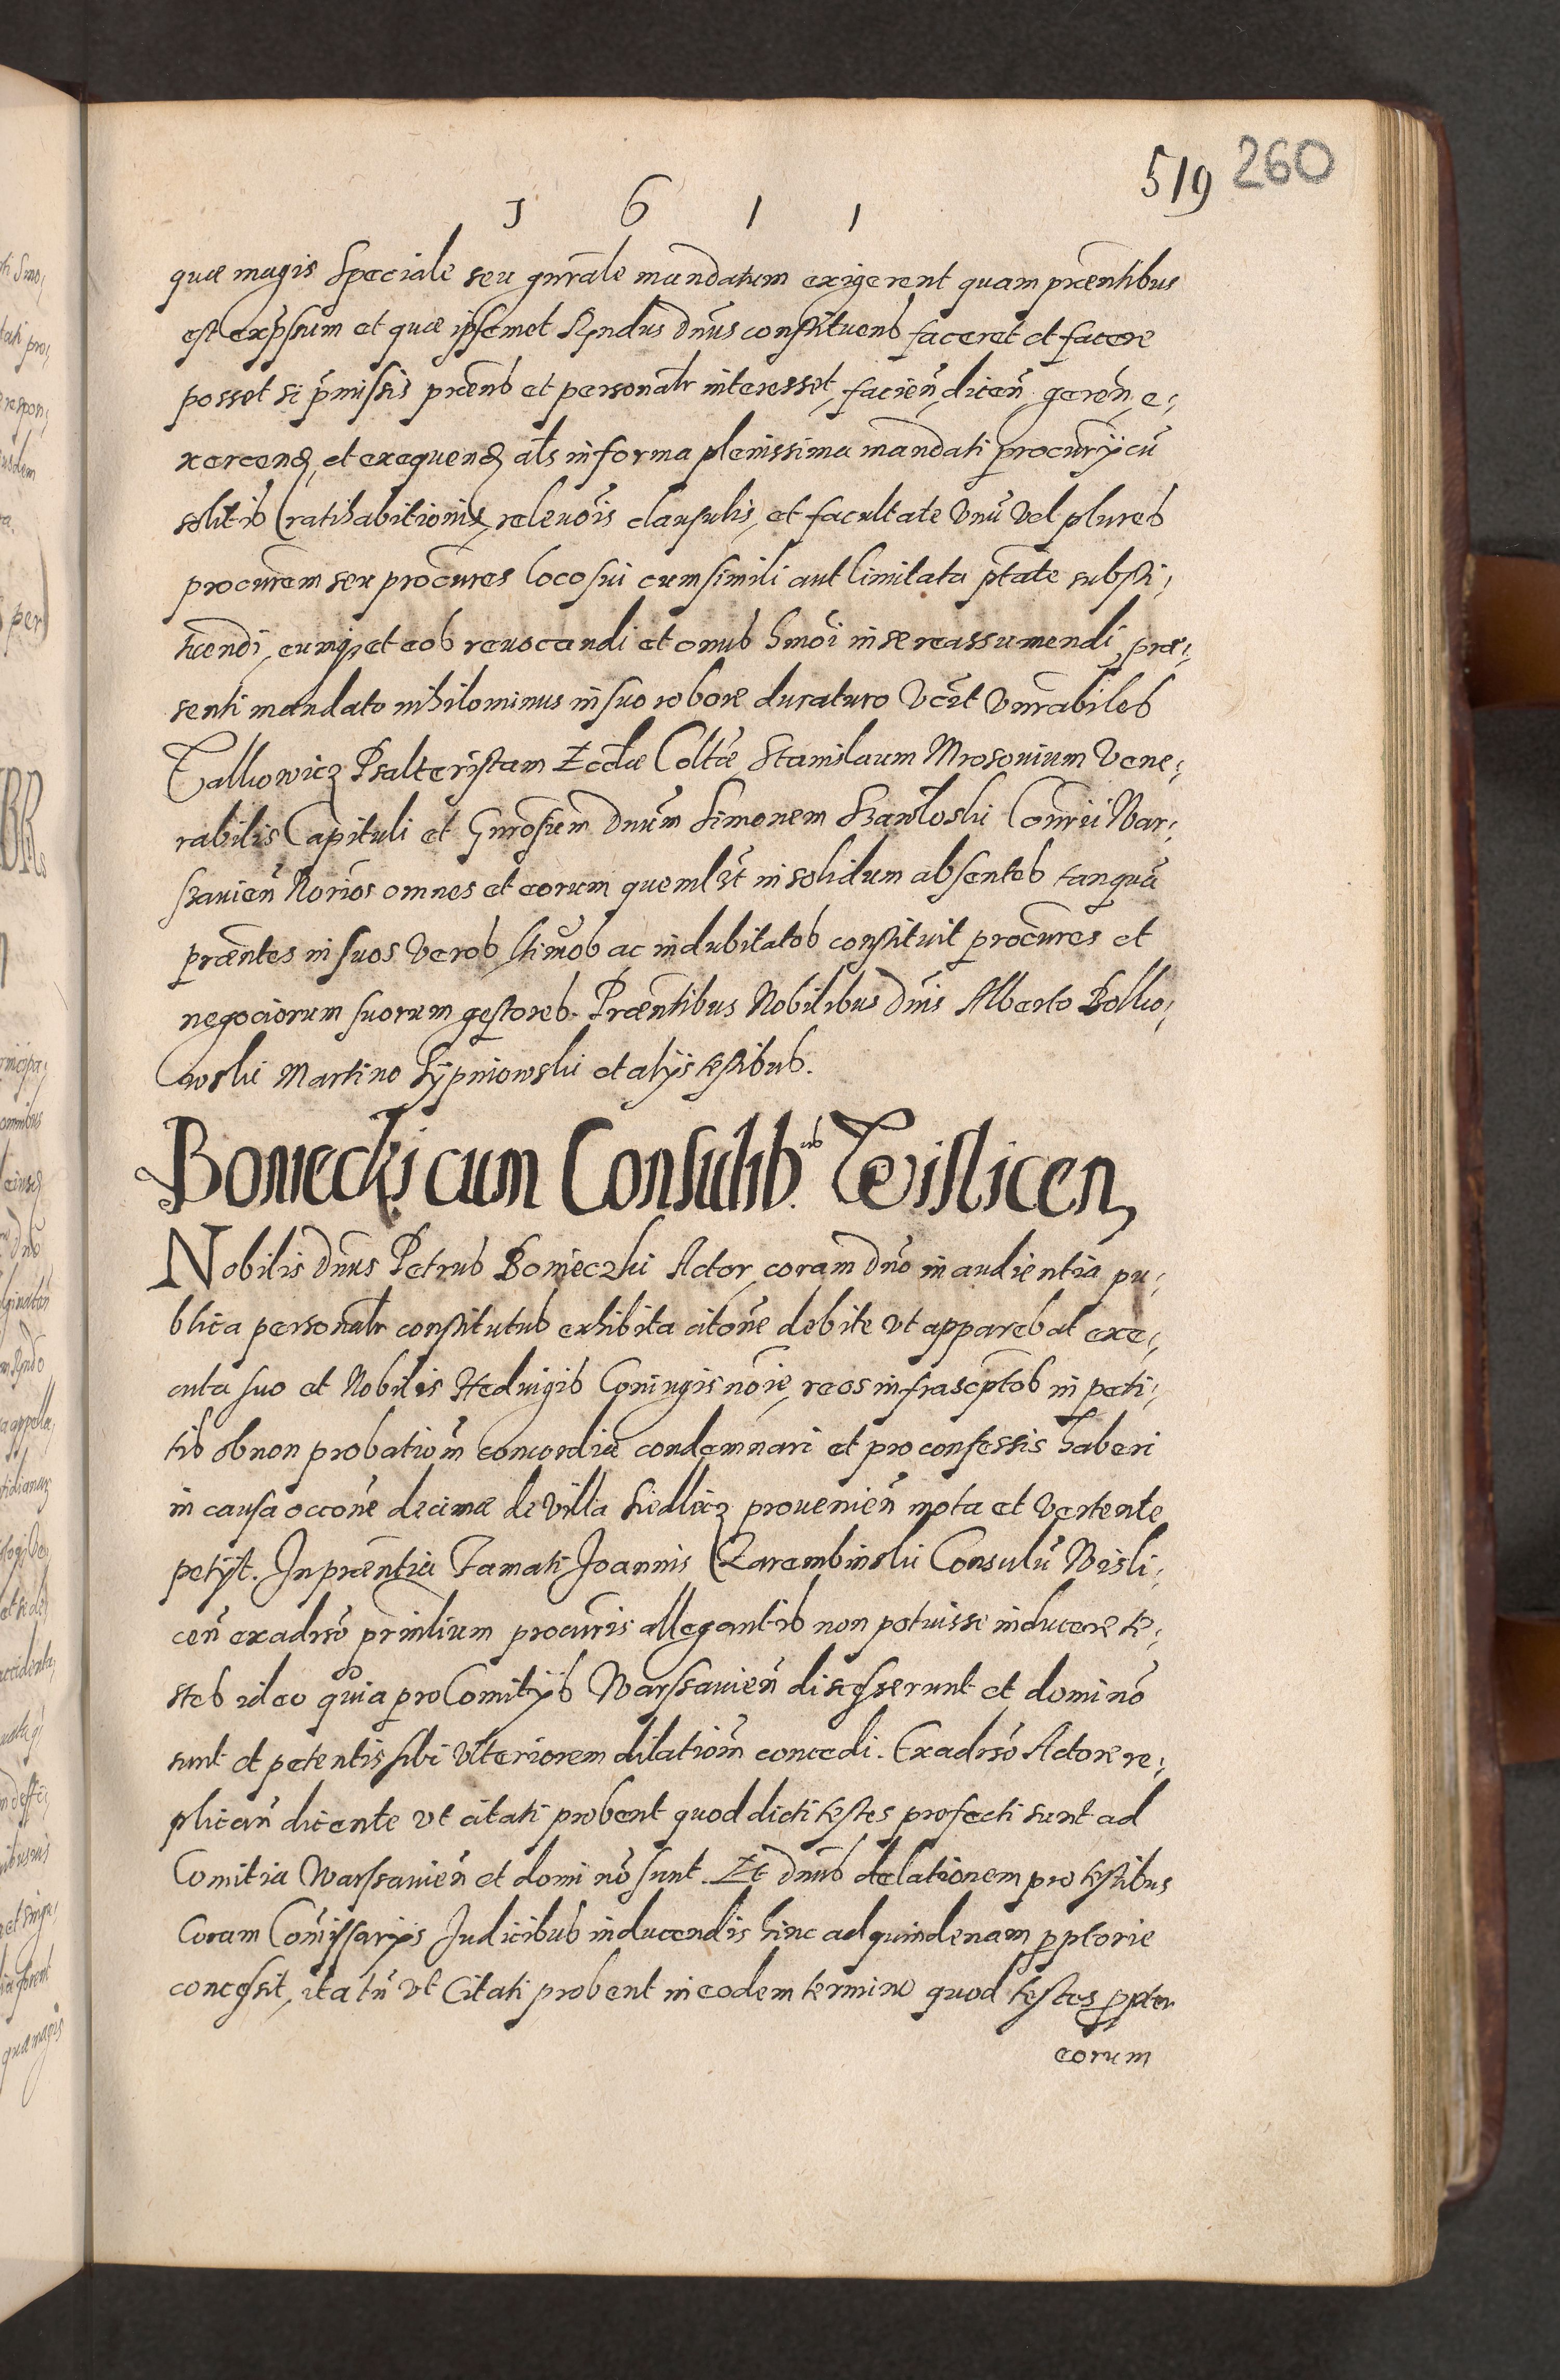 519 260
1 6 1 1
quæ magis speciale seu gn̄rale mandatum exigerent quam prēntibus
est exp̄ssum et quæ ipsemet Rn̄dus dn̄us constituens faceret et facere
posset si p̄missis prēns et personalr interesset, facien̄, dicen̄, geren̄, e¸
xercend, et exequend, als in forma plenissima mandati procur̄ij cū
solitis ratihabitionis, relevōis clausulis, et facultate Vnū Vel plures
procur̄em seu procur̄es loco sui cum simili aut limitata ptāte substi¸
tuendi, eumq, et eos revocandi et onus hmōi in se reassumendi, præ¸
senti mandato nihilominus in suo robore duraturo Vczt Vnrābiles
Psalteristam Ecclæ Coltæ Stanislaum Mrosovium Vene¸
rabilis Capituli et Gnrosum Dnūm Simonem Consrii War¸
szavien̄ Norios omnes et eorum quemlzt in solidum absentes tanquā
præntes in suos Veros ltimos ac indubitatos constituit procur̄es et
negociorum suorum gestores. Præntibus Nobilibus Dnis Alberto Bolko¸
wski Martino Sypniowski et alijs testibus.
Boniecki cum Consulib.us Wislicen,
Nobilis Dn̄us Petrus Bonieczki Actor coram Dnō in audientia pu¸
blica personalr constitutus exhibita citōne debite vt apparebat exe¸
cuta suo et Nobilis Hedvigis Coniugis noīe, reos infrascptos in peti¸
tis ob non probatiōm concordiæ condemnari et pro confessis haberi
in causa occōne decimæ de Villa Siedlecz provenien̄ mota et Vertente
petijt. In præntia Famati Joannis Zarembinski Consulū Wisli¸
cen̄ ex adrsō prinlium procur̄is allegantis non potuisse inducere te¸
stes ideo quia pro Comitijs Warssavien̄ discesserunt et domi nō
sunt et petentis sibi Vlteriorem dilatiōm concedi. Ex adrsō Actore re¸
plicān dicente vt citati probent quod dicti testes profecti sunt ad
Comitia Warssavien̄ et domi nō sunt. Et Dn̄us delationem pro testibus
Coram Com̄issarijs Judicibus inducendis hinc ad quindenam pptorie
concessit, ita tn̄ vt Citati probent in eodem termino quod testes ppter
eorum